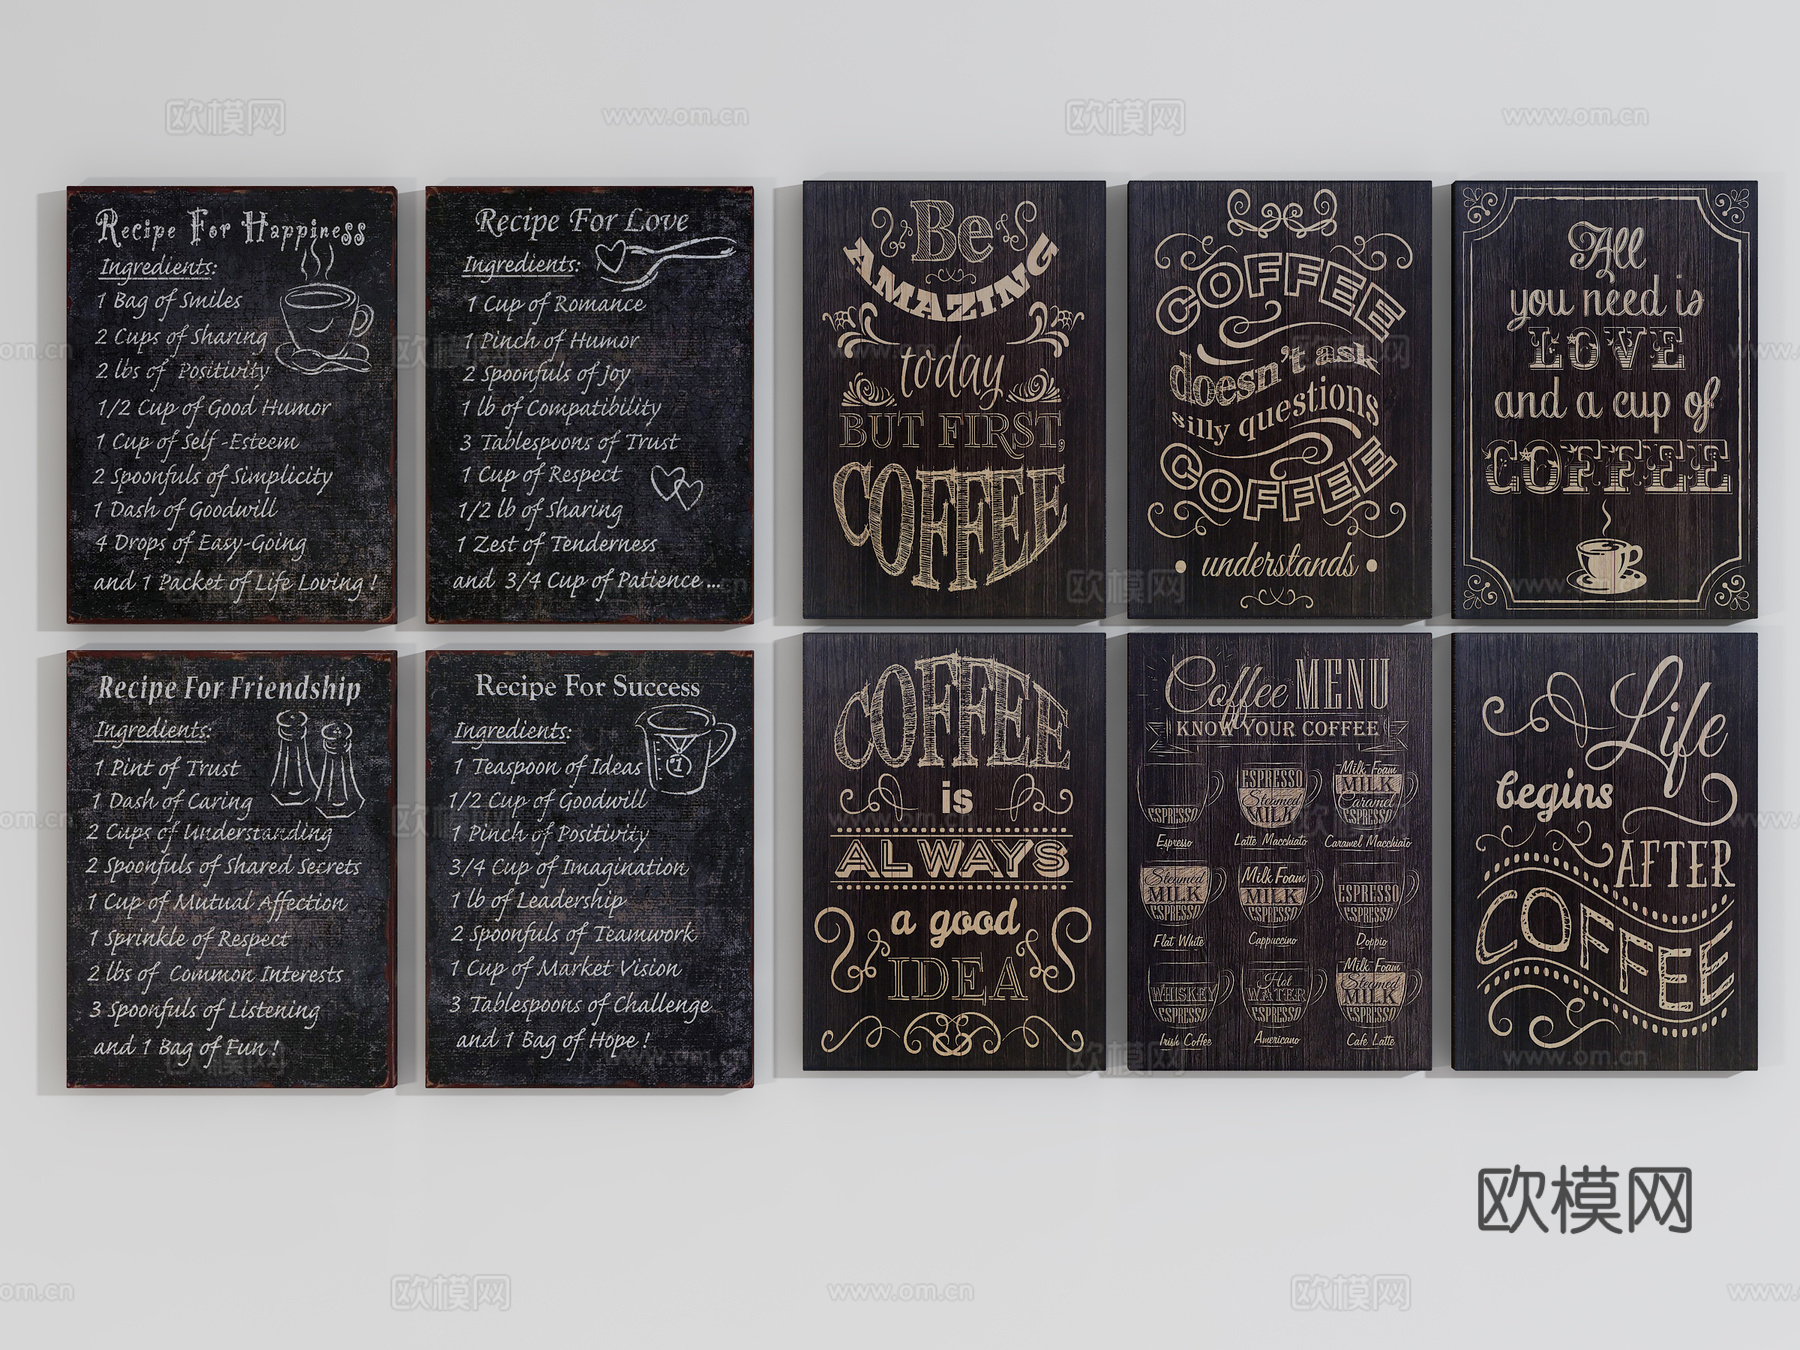 Recipe For Happiness
Ingredients:
1 Bag of Smiles
2 Cups of Sharing
2 lbs of Positivity
1/2 Cup of Good Humor
1 Cup of Self-Esteem
2 Spoonfuls of Simplicity
1 Dash of Goodwill
4 Drops of Easy-Going
and 1 Packet of Life Loving !
Recipe For Love
Ingredients:
1 Cup of Romance
1 Pinch of Humor
2 Spoonfuls of Joy
1 lb of Compatibility
3 Tablespoons of Trust
1 Cup of Respect
1/2 lb of Sharing
1 Zest of Tenderness
and 3/4 Cup of Patience ...
Be
AMAZING
today
BUT FIRST,
COFFEE
COFFEE
doesn't ask
silly questions
COFFEE
• understands •
All
you need is
LOVE
and a cup of
COFFEE
Recipe For Friendship
Ingredients:
1 Pint of Trust
1 Dash of Caring
2 Cups of Understanding
2 Spoonfuls of Shared Secrets
1 Cup of Mutual Affection
1 Sprinkle of Respect
2 lbs of Common Interests
3 Spoonfuls of Listening
and 1 Bag of Fun !
Recipe For Success
Ingredients:
1 Teaspoon of Ideas
1/2 Cup of Goodwill
1 Pinch of Positivity
3/4 Cup of Imagination
1 lb of Leadership
2 Spoonfuls of Teamwork
1 Cup of Market Vision
3 Tablespoons of Challenge
and 1 Bag of Hope !
1
COFFEE
is
ALWAYS
a good
IDEA
Coffee MENU
KNOW YOUR COFFEE
ESPRESSO
Espresso
ESPRESSO
Steamed
MILK
Latte Macchiato
Milk Foam
MILK
Caramel
ESPRESSO
Caramel Macchiato
Steamed
MILK
ESPRESSO
Flat White
Milk Foam
MILK
ESPRESSO
Cappuccino
ESPRESSO
ESPRESSO
Doppio
WHISKEY
ESPRESSO
Irish Coffee
Hot
WATER
ESPRESSO
Americano
Milk Foam
Steamed
MILK
ESPRESSO
Cafe Latte
Life
begins
AFTER
COFFEE
欧模网
www.om.cn